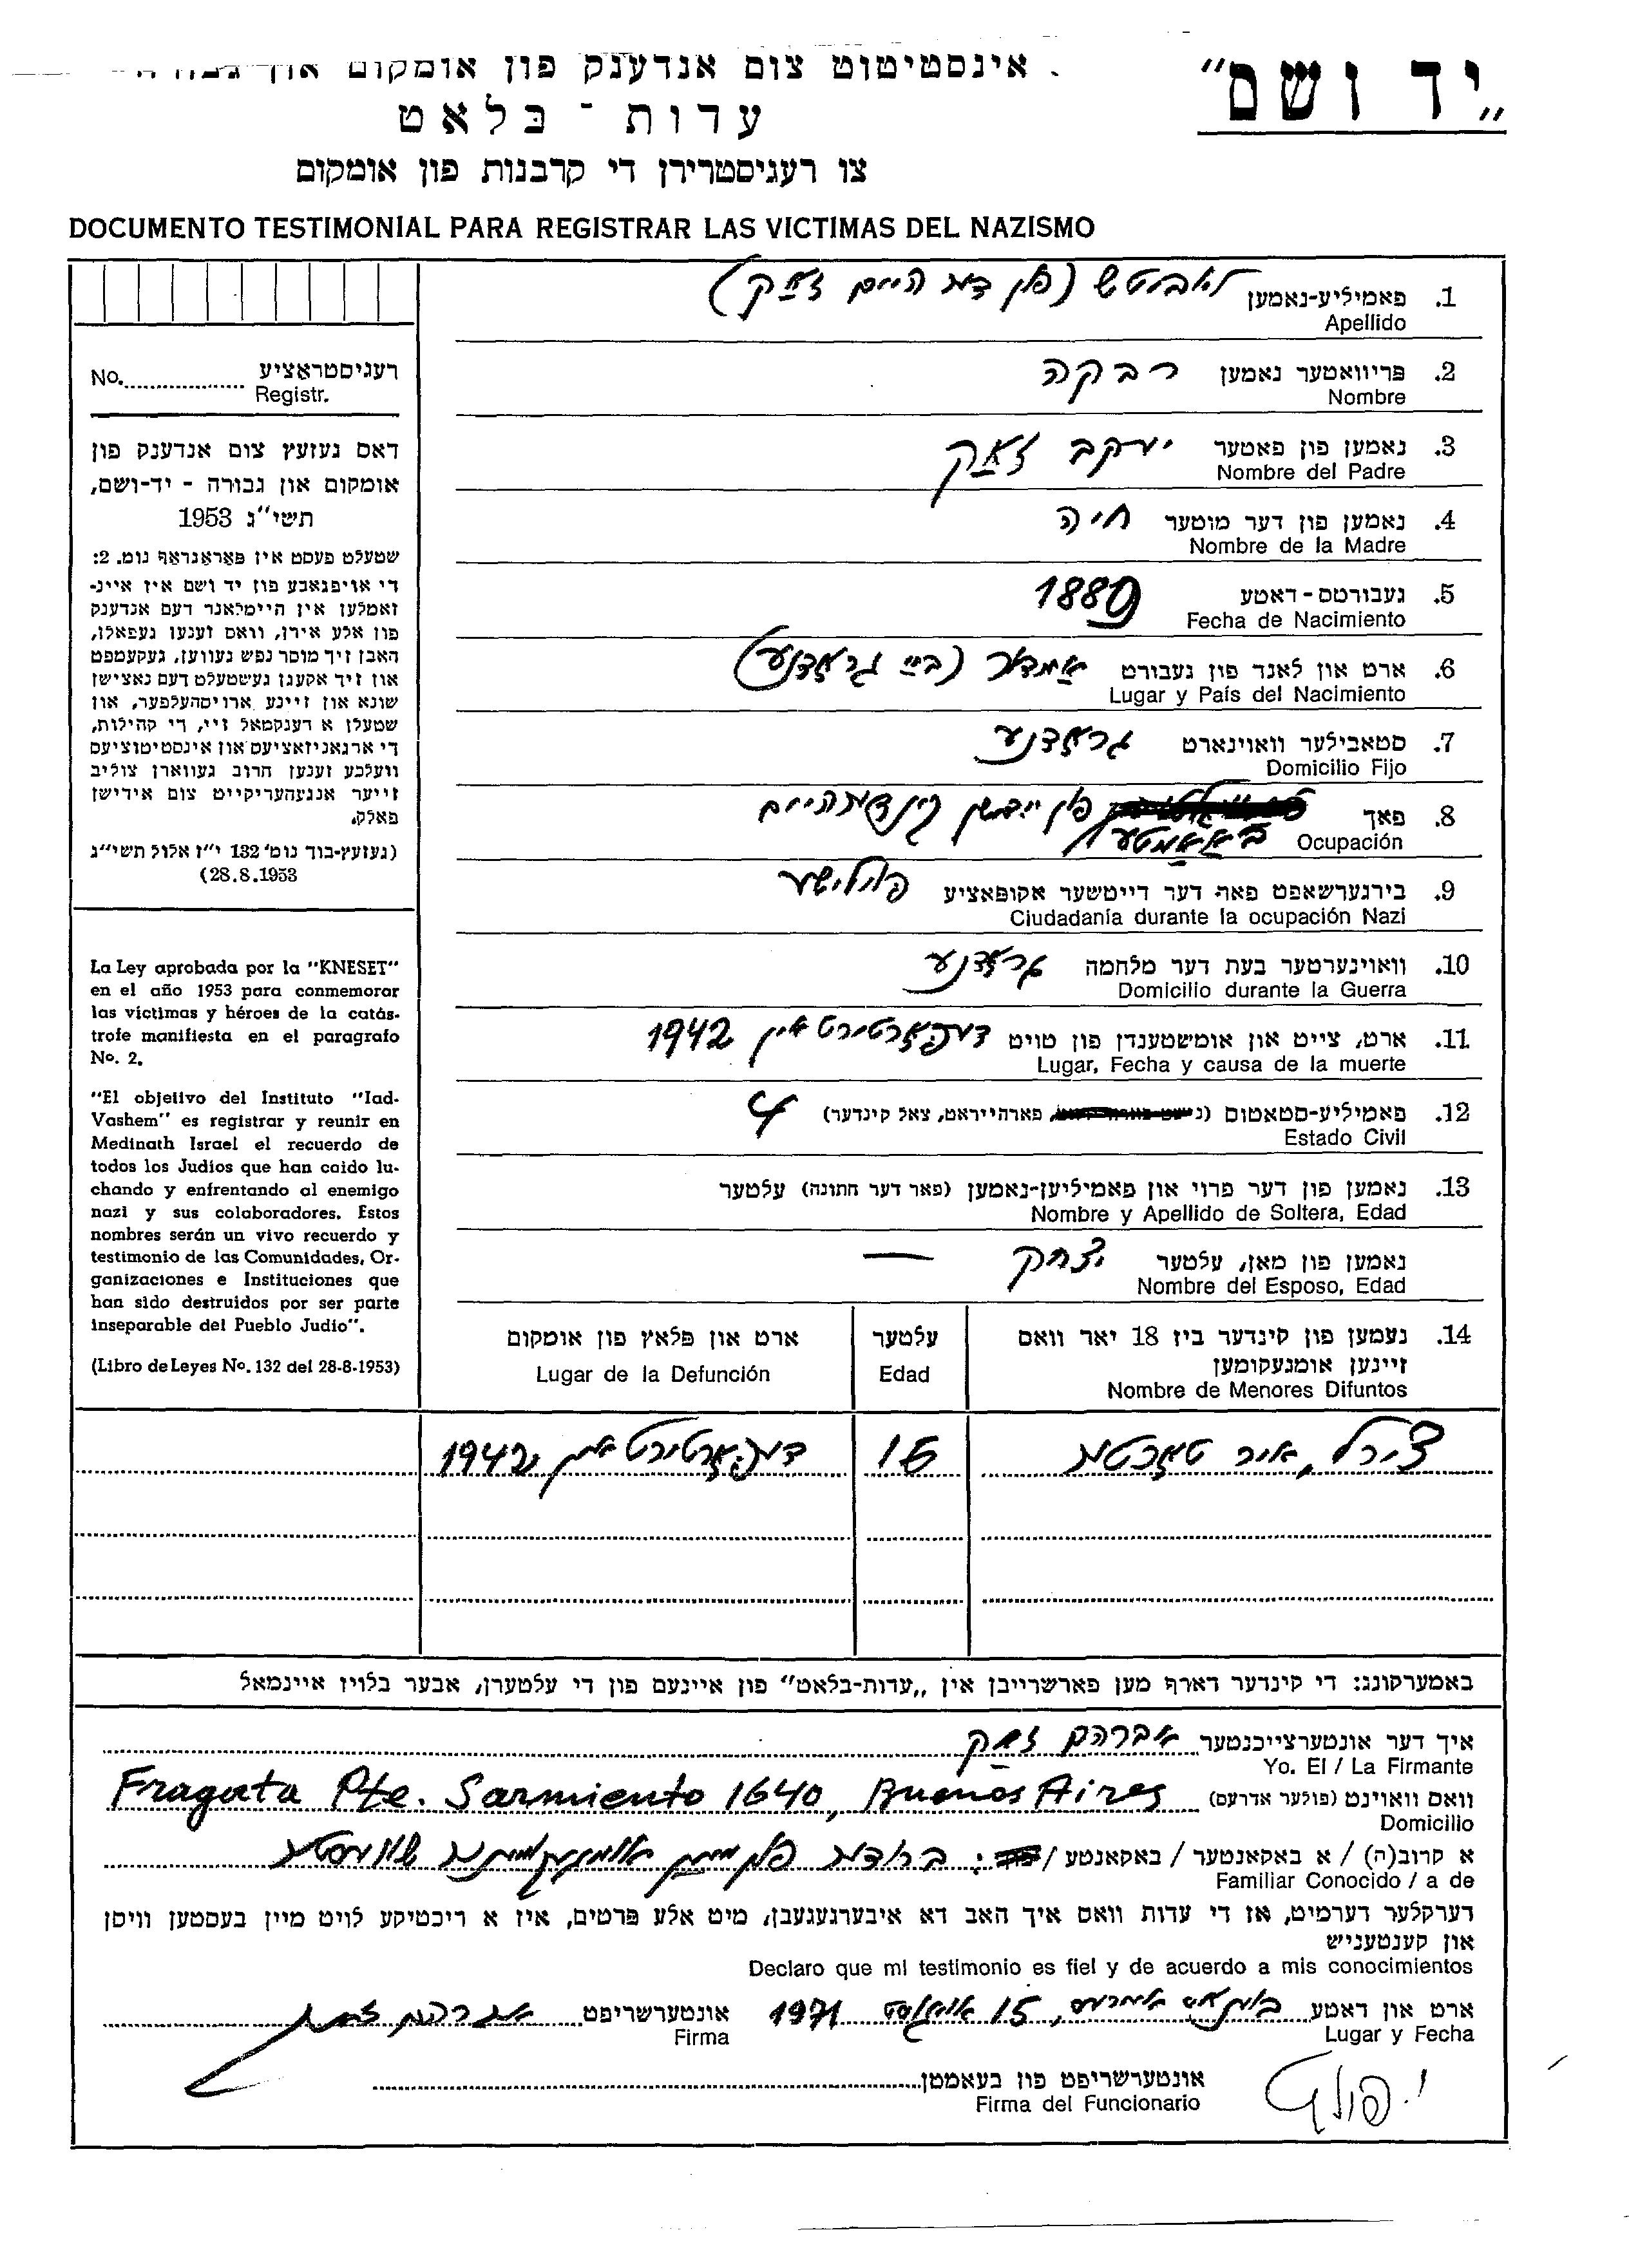 „יד ושם"
אינסטיטוט צום אנדענק פון אומקום און
עדות - בלאט
צו רעגיסטרירן די קרבנות פון אומקום
DOCUMENTO TESTIMONIAL PARA REGISTRAR LAS VICTIMAS DEL NAZISMO
רעגיסטראציע
No. Registr.
דאס געזעץ צום אנדענק פון
אומקום און גבורה - יד-ושם,
תשי"ג 1953
שטעלט פעסט אין פאראגראף נומ. 2:
די אויפגאבע פון יד ושם איז איינ-
זאמלען אין היימלאנד דעם אנדענק
פון אלע אידן, וואס זענען געפאלן,
האבן זיך מוסר נפש געווען, געקעמפט
און זיך אקעגן געשטעלט דעם נאצישן
שונא און זיינע ארויסהעלפער, און
שטעלן א דענקמאל זיי, די קהילות,
די ארגאניזאציעס און אינסטיטוציעס
וועלכע זענען חרוב געווארן צוליב
זייער אנגעהעריקייט צום אידישן
פאלק.
(געזעץ-בוך נומ' 132 י"ז אלול תשי"ג
28.8.1953)
La Ley aprobada por la "KNESET"
en el año 1953 para conmemorar
las víctimas y héroes de la catás-
trofe manifiesta en el paragrafo
No. 2.
"El objetivo del Instituto "Iad-
Vashem" es registrar y reunir en
Medinath Israel el recuerdo de
todos los Judíos que han caido lu-
chando y enfrentando al enemigo
nazi y sus colaboradores. Estos
nombres serán un vivo recuerdo y
testimonio de las Comunidades, Or-
ganizaciones e Instituciones que
han sido destruidos por ser parte
inseparable del Pueblo Judío".
(Libro de Leyes No. 132 del 28-8-1953)
1. פאמיליע-נאמען (פון דער היים זאק)
Apellido
2. פריוואטער נאמען רבקה
Nombre
3. נאמען פון פאטער יעקב זאק
Nombre del Padre
4. נאמען פון דער מוטער חיה
Nombre de la Madre
5. געבורטס-דאטע 1880
Fecha de Nacimiento
6. ארט און לאנד פון געבורט אמדור (ביי גראדנע)
Lugar y País del Nacimiento
7. סטאבילער וואוינארט גראדנע
Domicilio Fijo
8. פאך באאמטע פון יידישן קינדערהיים
Ocupación
9. בירגערשאפט פאר דער דייטשער אקופאציע פוילישע
Ciudadanía durante la ocupación Nazi
10. וואוינערטער בעת דער מלחמה גראדנע
Domicilio durante la Guerra
11. ארט, צייט און אומשטענדן פון טויט דעפארטירט אין 1942
Lugar, Fecha y causa de la muerte
12. פאמיליע-סטאטוס פארהייראט, צאל קינדער) 4
Estado Civil
13. נאמען פון דער פרוי און פאמיליען-נאמען (פאר דער חתונה) עלטער
Nombre y Apellido de Soltera, Edad
נאמען פון מאן, עלטער יצחק —
Nombre del Esposo, Edad
14. נעמען פון קינדער ביז 18 יאר וואס
זיינען אומגעקומען
Nombre de Menores Difuntos
עלטער
Edad
ארט און פלאץ פון אומקום
Lugar de la Defunción
צירל, איר טאכטער 16 דעפארטירט אין 1942
באמערקונג: די קינדער דארף מען פארשרייבן אין „עדות-בלאט" פון איינעם פון די עלטערן, אבער בלויז איינמאל
איך דער אונטערצייכנטער אברהם זאק
Yo. El / La Firmante
וואס וואוינט (פולער אדרעס) Fragata Pte. Sarmiento 1640, Buenos Aires
Domicilio
א קרוב(ה) / א באקאנטער / באקאנטע / : ברודער פון מיין אומגעקומענער שוועסטער
Familiar Conocido / a de
דערקלער דערמיט, אז די עדות וואס איך האב דא איבערגעגעבן, מיט אלע פרטים, איז א ריכטיקע לויט מיין בעסטען וויסן
און קענטעניש
Declaro que mi testimonio es fiel y de acuerdo a mis conocimientos
ארט און דאטע בוענאס איירעס, 15 אויגוסט 1971 אונטערשריפט אברהם זאק
Lugar y Fecha Firma
אונטערשריפט פון בעאמטן
Firma del Funcionario